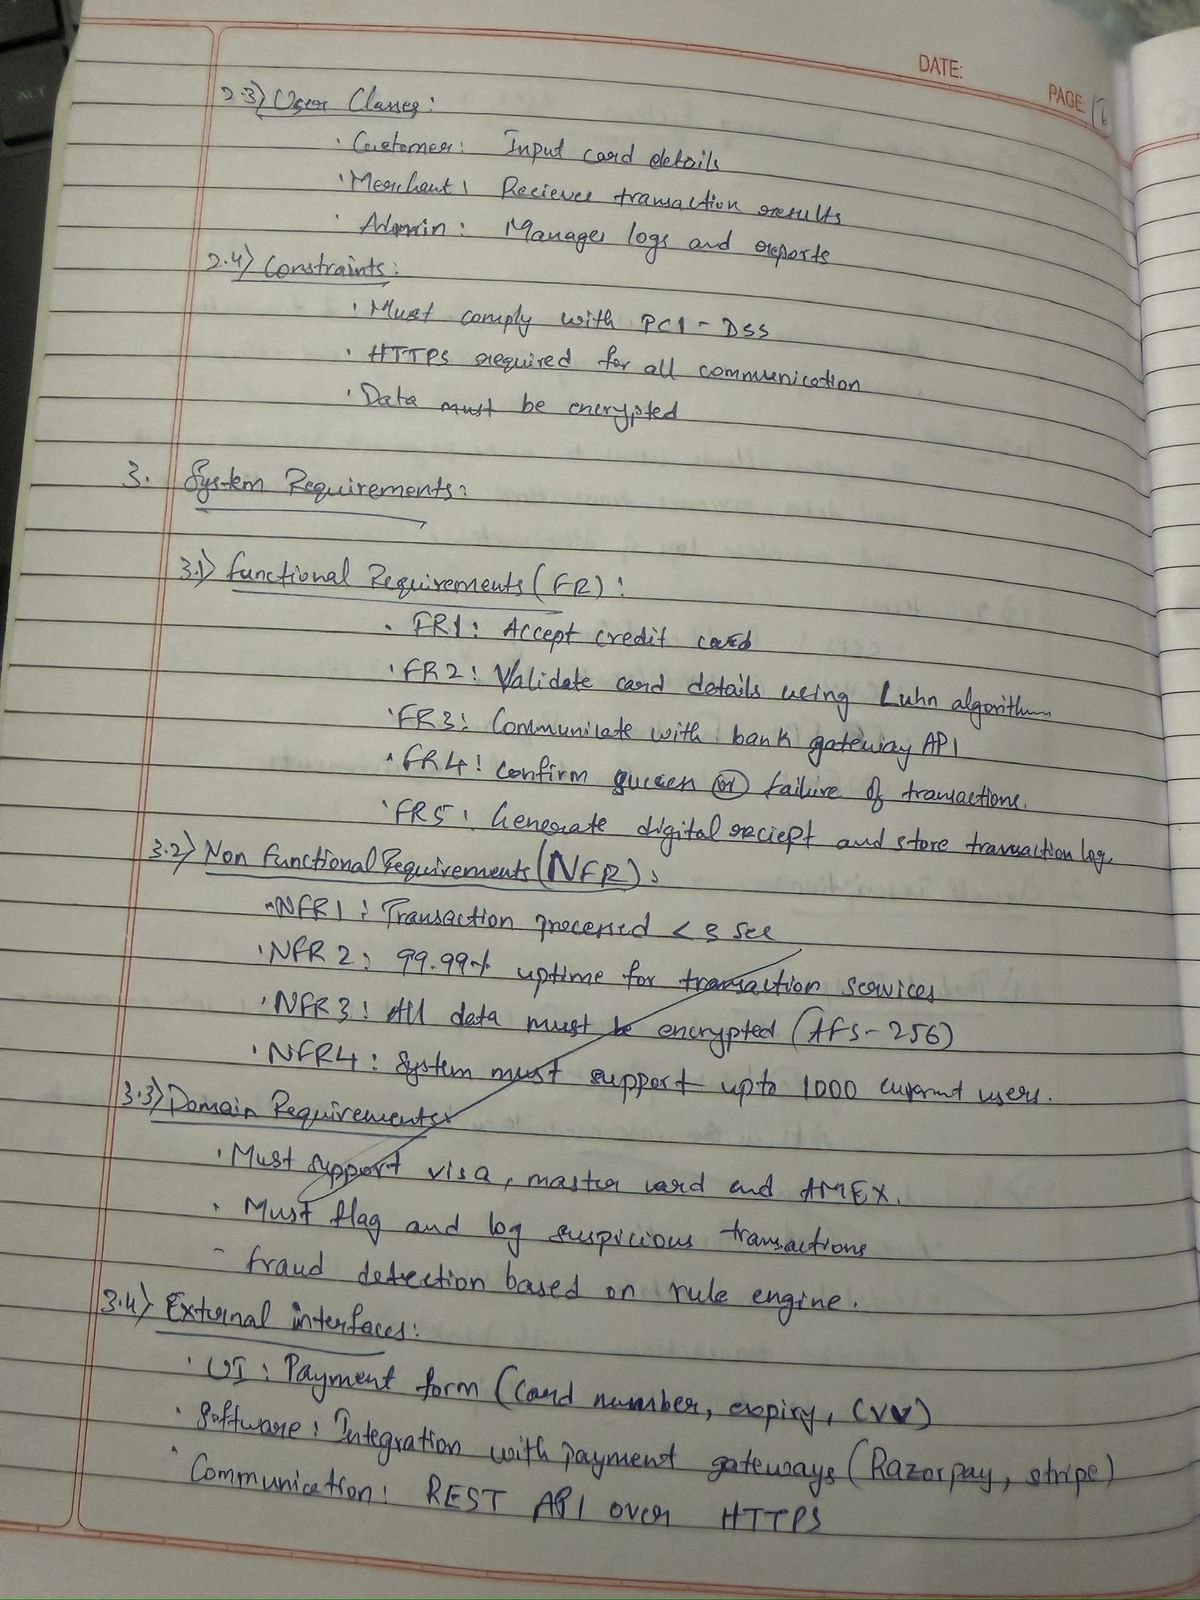 DATE:
PAGE: 6
2.3) User Classes:
· Customer: Input card details
· Merchant: Recieves transaction results
· Admin: Manages logs and reports
2.4) Constraints:
· Must comply with PCI - DSS
· HTTPS required for all communication
· Data must be encrypted
3. System Requirements:
3.1) Functional Requirements (FR):
· FR1: Accept credit card
· FR2: Validate card details using Luhn algorithm
· FR3: Communicate with bank gateway API
· FR4: Confirm success or failure of transactions.
· FR5: Generate digital reciept and store transaction log.
3.2) Non Functional Requirements (NFR):
· NFR1: Transaction processed < 3 sec
· NFR2: 99.99% uptime for transaction services
· NFR3: All data must be encrypted (AES-256)
· NFR4: System must support upto 1000 users.
3.3) Domain Requirements:
· Must support visa, master card and AMEX.
· Must flag and log suspicious transactions
- fraud detection based on rule engine.
3.4) External interfaces:
· UI: Payment form (Card number, expiry, CVV)
· Software: Integration with payment gateways (Razorpay, stripe)
· Communication: REST API over HTTPS